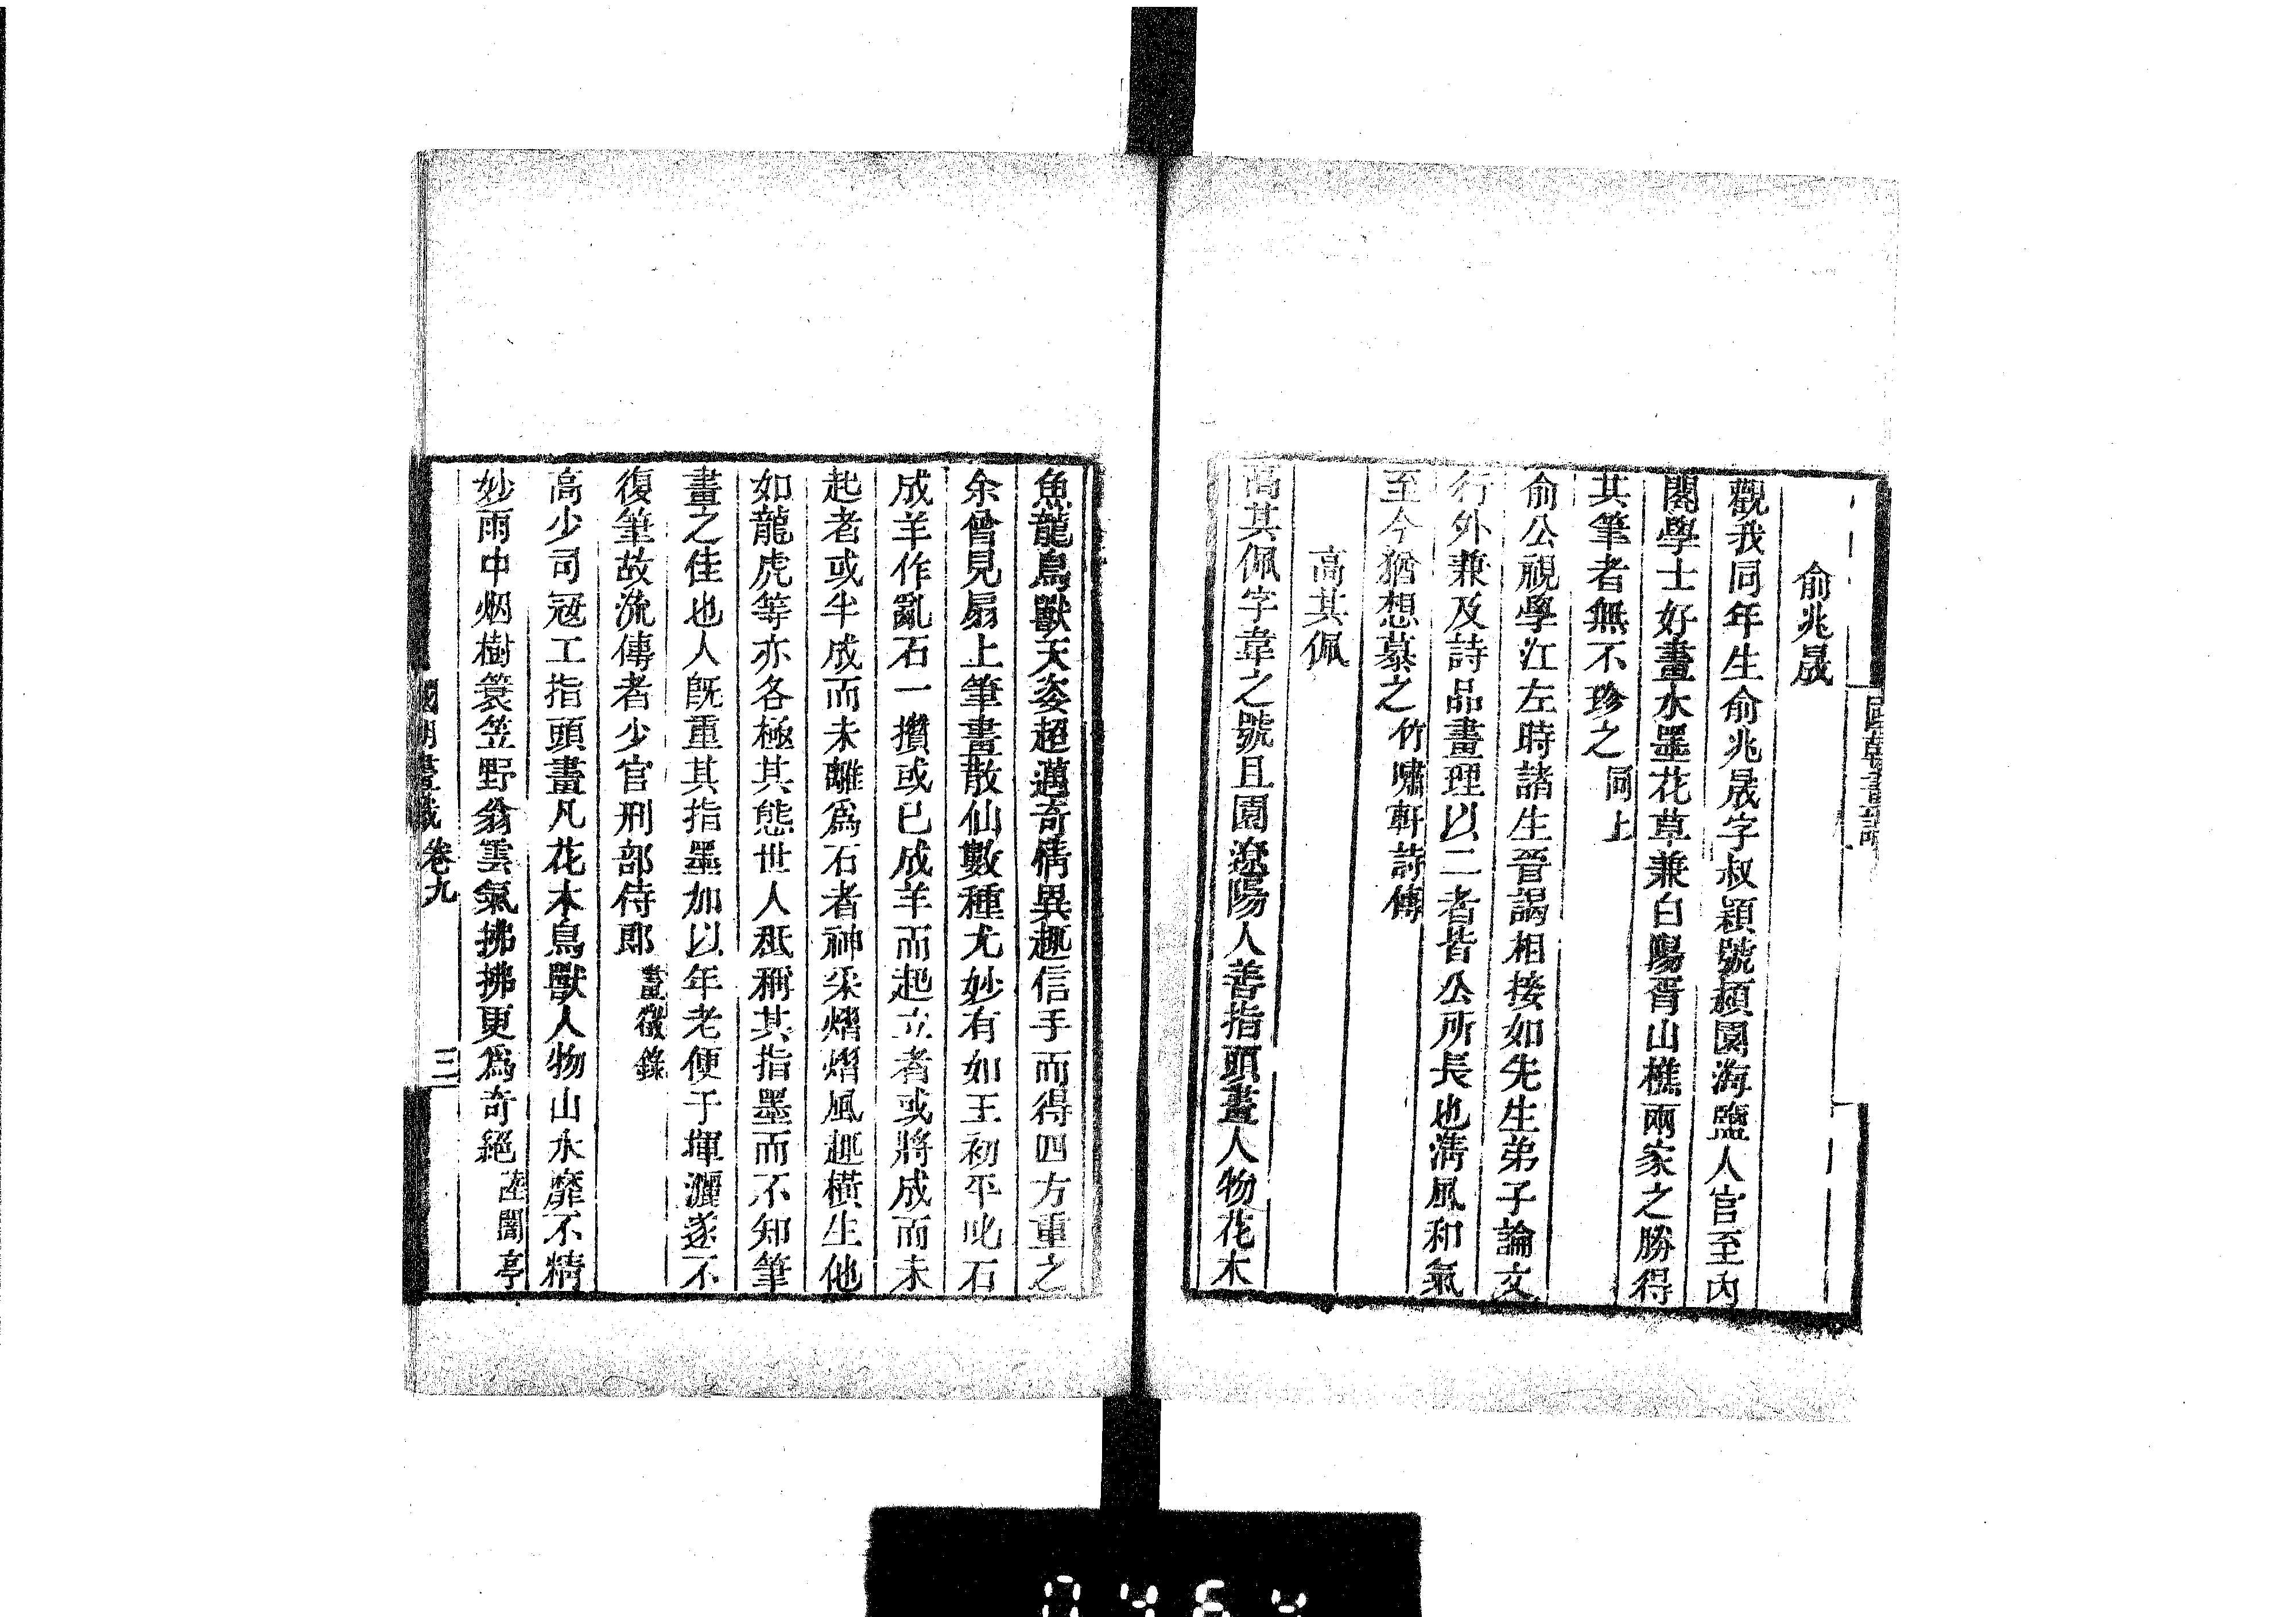 俞兆晟
觀我同年生俞兆晟字叔穎號頹園海鹽人官至內
閣學士好畫水墨花草兼白陽胥山樵兩家之勝得
其筆者無不珍之同上
俞公視學江左時諸生晉謁相接如先生弟子論文
行外兼及詩品畫理以二者皆公所長也清風和氣
至今猶想慕之竹嘯軒詩傳
高其佩
高其佩字韋之號且園遼陽人善指頭畫人物花木
魚龍鳥獸天姿超邁奇情異趣信手而得四方重之
余曾見扇上筆畫散仙數種尤妙有如王初平叱石
成羊作亂石一攢或已成羊而起立者或將成而未
起者或半成而未離為石者神采熠熠風趣橫生他
如龍虎等亦各極其態世人秪稱其指墨而不知筆
畫之佳也人旣重其指墨加以年老便于揮灑遂不
復筆故流傳者少官刑部侍郎畫徵錄
高少司冦工指頭畫凡花木鳥獸人物山水靡不精
妙雨中烟樹簑笠野翁雲氣拂拂更為奇絕
國朝畫識 卷九 三